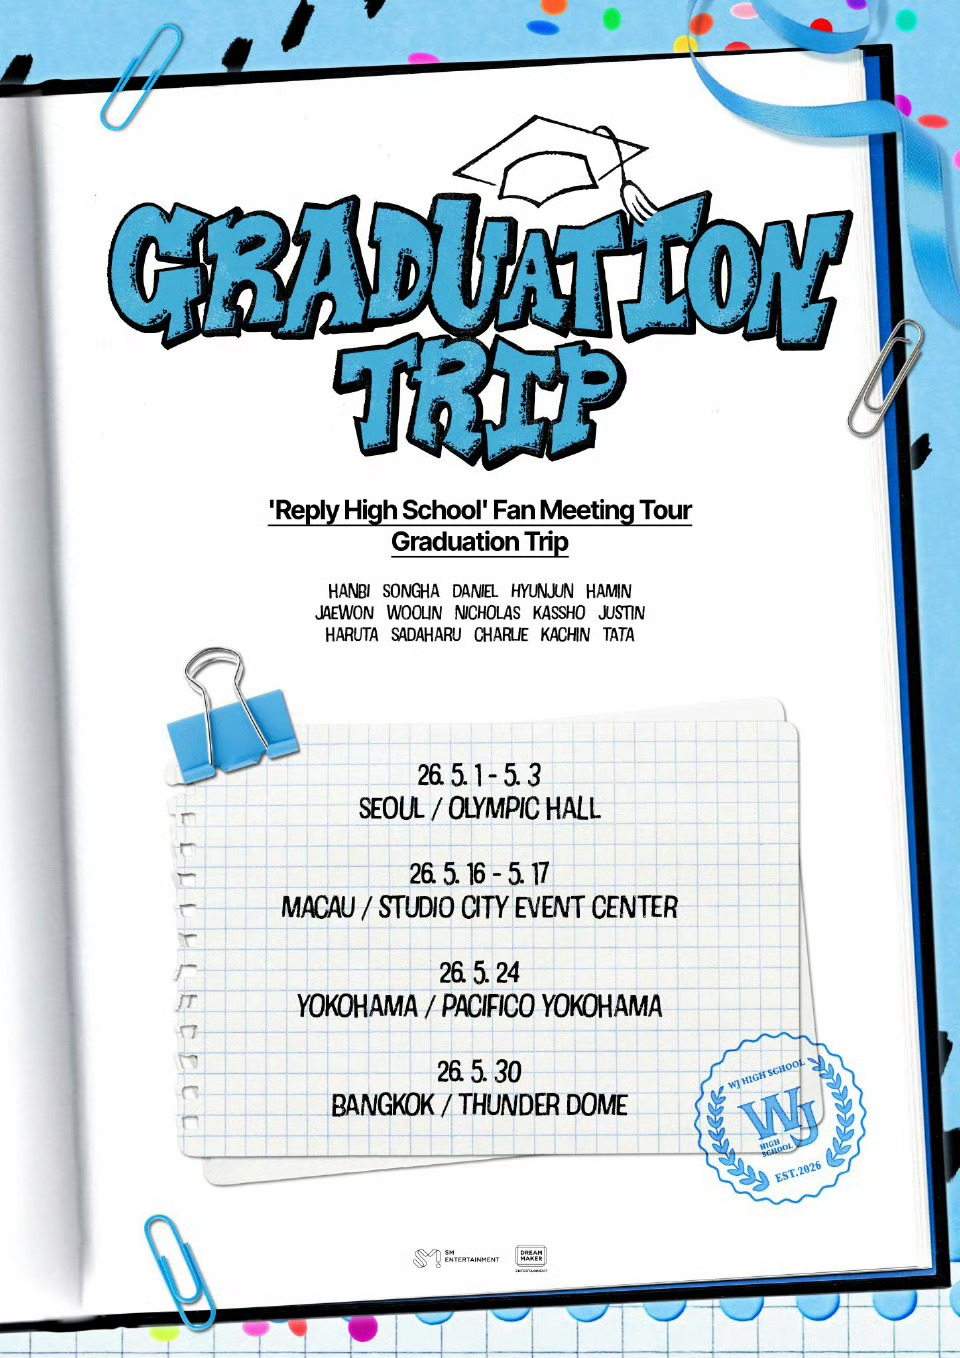 GRADUATION
TRIP
'Reply High School' Fan Meeting Tour
Graduation Trip
HANBI SONGHA DANIEL HYUNJUN HAMIN
JAEWON WOOLIN NICHOLAS KASSHO JUSTIN
HARUTA SADAHARU CHARLIE KACHIN TATA
26. 5. 1 - 5. 3
SEOUL / OLYMPIC HALL
26. 5. 16 - 5. 17
MACAU / STUDIO CITY EVENT CENTER
26. 5. 24
YOKOHAMA / PACIFICO YOKOHAMA
26. 5. 30
BANGKOK / THUNDER DOME
WJ HIGH SCHOOL
WJ
HIGH
SCHOOL
EST.2026
SM
ENTERTAINMENT
DREAM
MAKER
ENTERTAINMENT